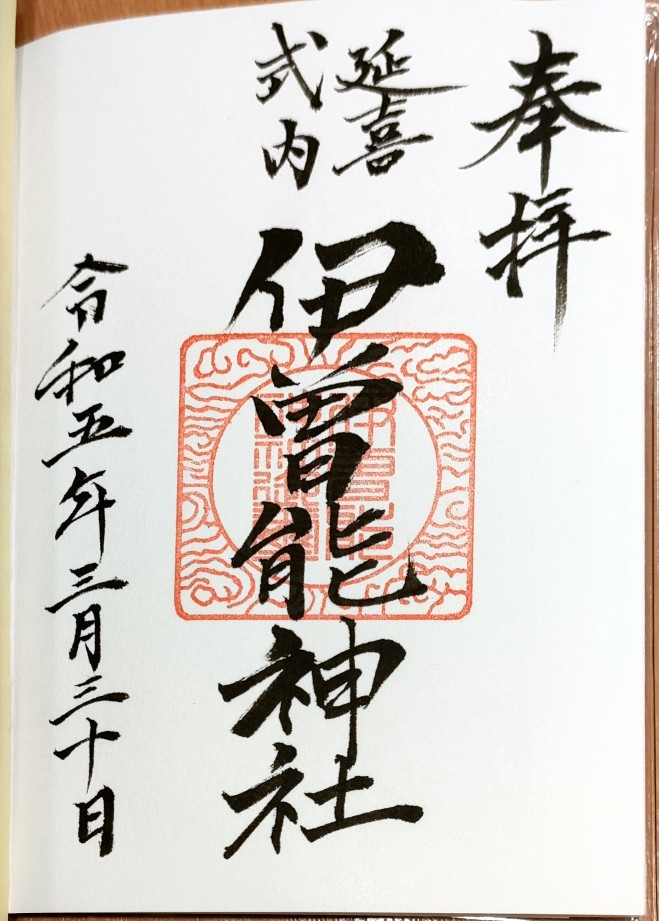 奉拝
延喜
式内
伊曽能神社
令和五年三月三十日